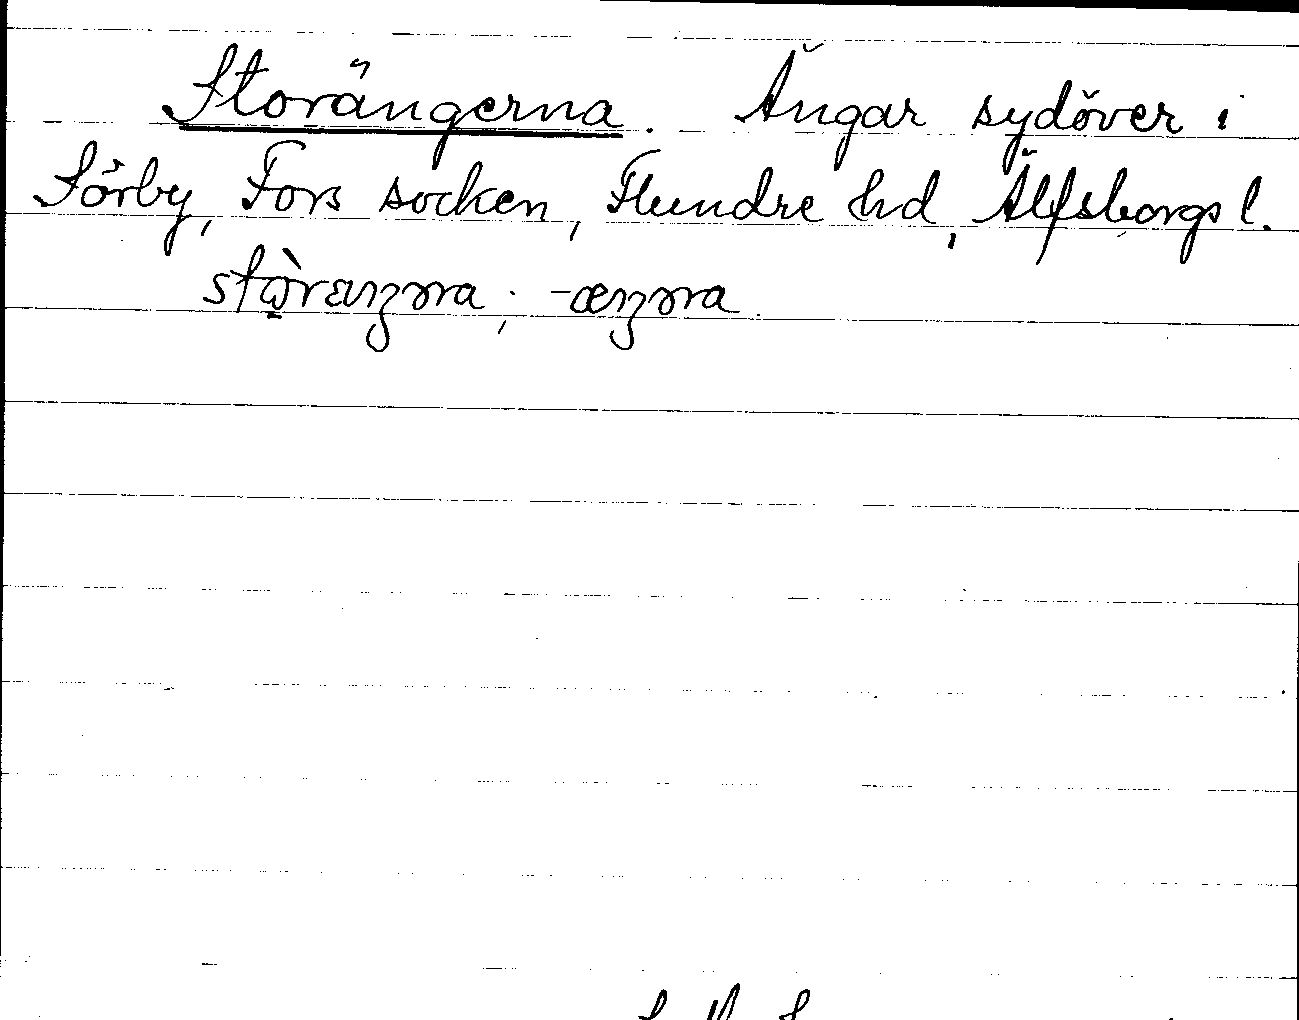 Storängerna. Ängar sydöver i
Sörby, Fors socken, Flundre hd, Älfsborgs l.